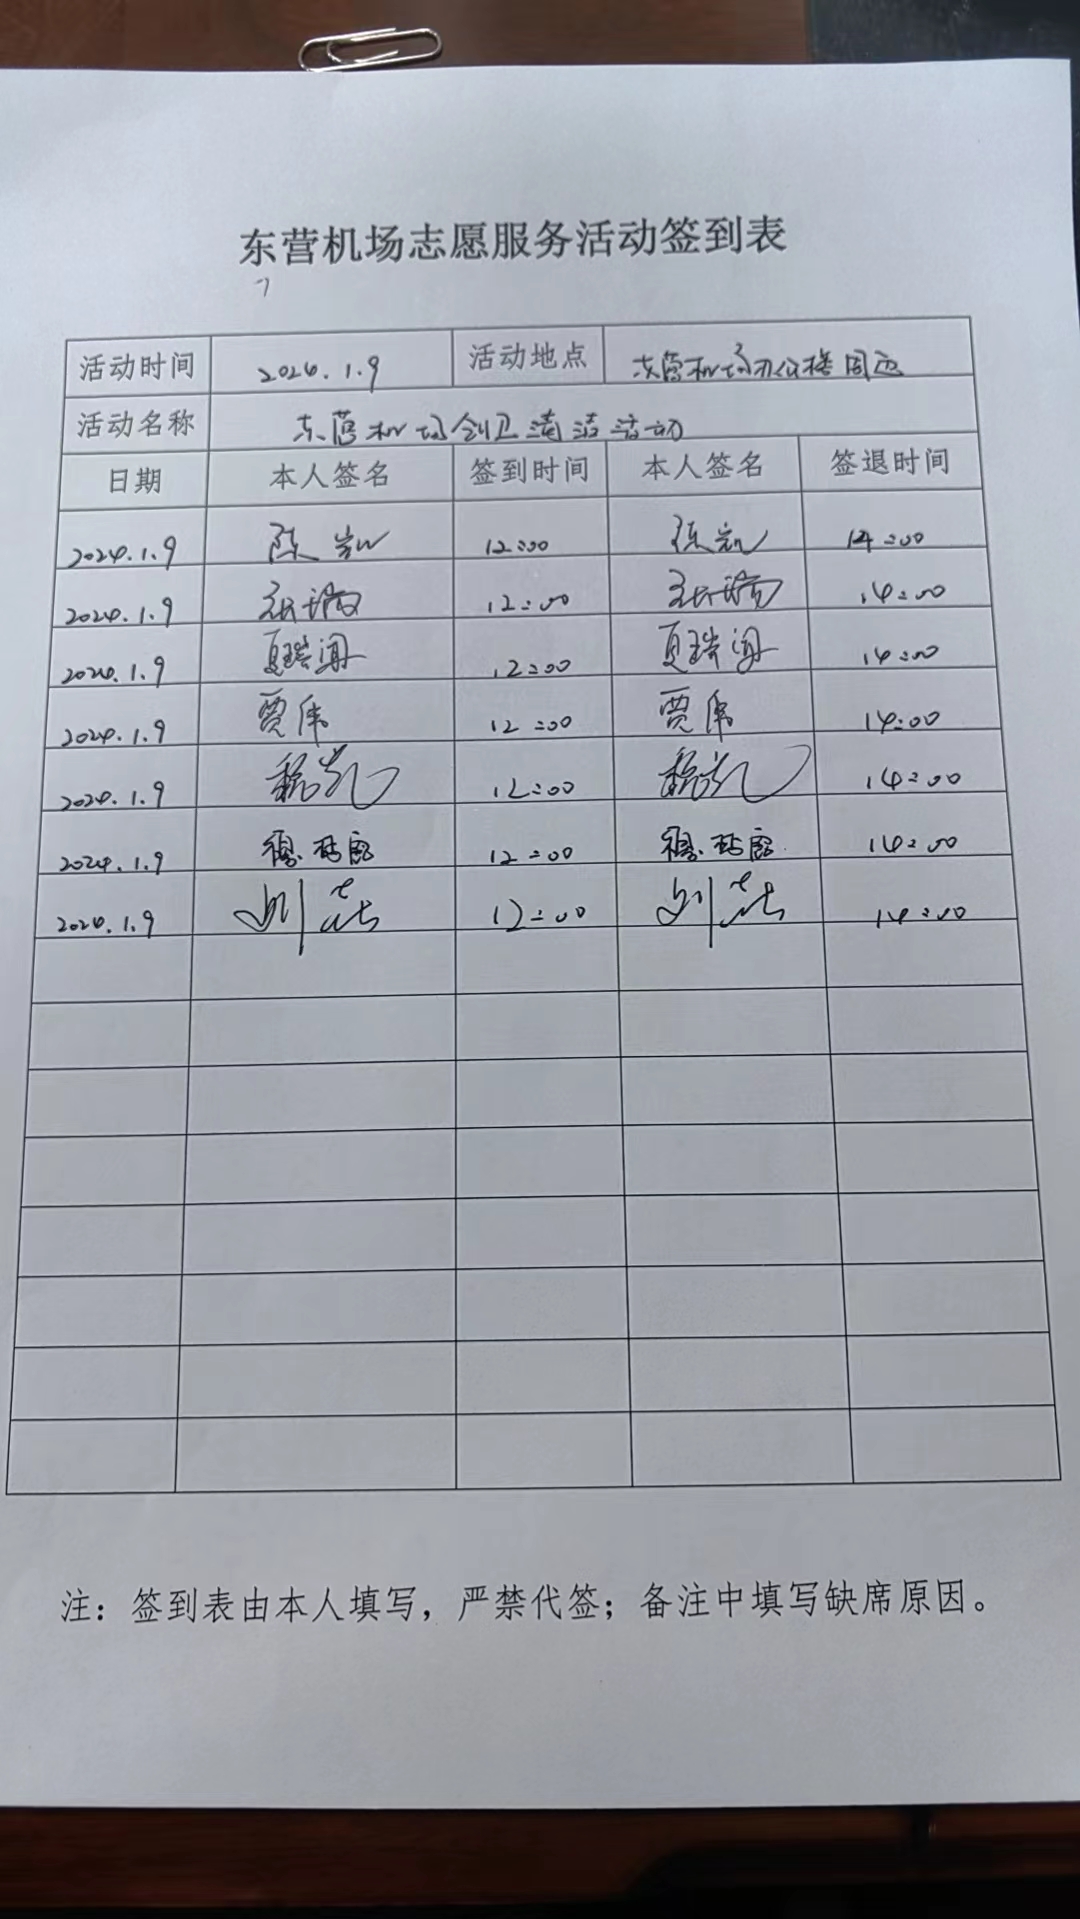 东营机场志愿服务活动签到表
活动时间 2024.1.9 活动地点 东营机场办公楼周边
活动名称 东营机场创卫清洁活动
日期 本人签名 签到时间 本人签名 签退时间
2024.1.9 陈岩 12:00 陈岩 14:00
2024.1.9 12:00 14:00
2024.1.9 夏瑞 12:00 夏瑞 14:00
2024.1.9 贾伟 12:00 贾伟 14:00
2024.1.9 12:00 14:00
2024.1.9 12:00 14:00
2024.1.9 刘 12:00 刘 14:00
注：签到表由本人填写，严禁代签；备注中填写缺席原因。